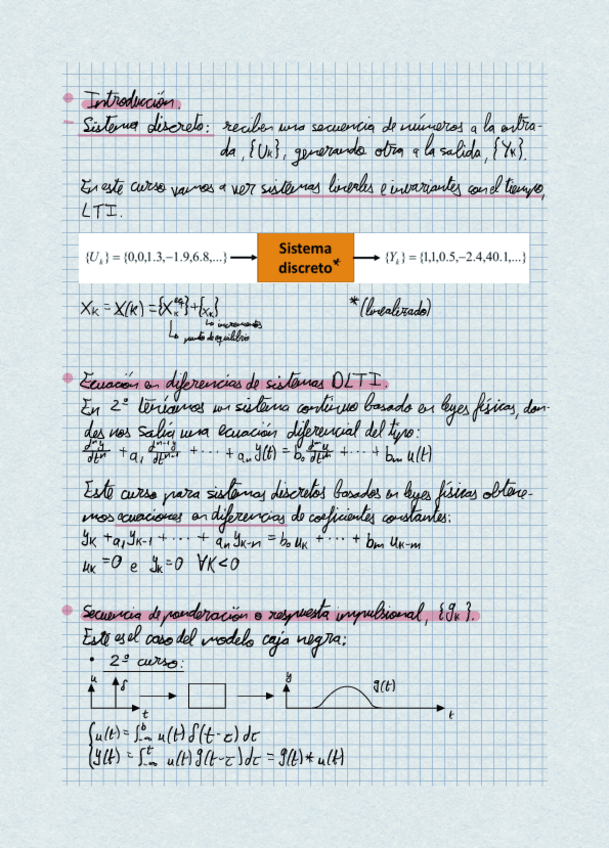 Introducción.
Sistema discreto: reciben una secuencia de números a la entra-
da, {Uₖ}, generando otra a la salida, {Yₖ}.
En este curso vamos a ver sistemas lineales e invariantes con el tiempo,
LTI.
{Uₖ} = {0,0,1.3,−1.9,6.8,...} → Sistema discreto* → {Yₖ} = {1,1,0.5,−2.4,40.1,...}
Xₖ = X(k) = {Xₖ^eq} + {xₖ} *(linealizado)
↳ incrementos
↳ punto de equilibrio
Ecuación en diferencias de sistemas DLTI.
En 2º teníamos un sistema continuo basado en leyes físicas, don-
de nos salía una ecuación diferencial del tipo:
dⁿy/dtⁿ + a₁ dⁿ⁻¹y/dtⁿ⁻¹ + ··· + aₙy(t) = b₀ dᵐu/dtᵐ + ··· + bₘ u(t)
Este curso para sistemas discretos basados en leyes físicas obtene-
mos ecuaciones en diferencias de coeficientes constantes:
yₖ + a₁yₖ₋₁ + ··· + aₙyₖ₋ₙ = b₀uₖ + ··· + bₘ uₖ₋ₘ
uₖ = 0 e yₖ = 0 ∀K<0
Secuencia de ponderación o respuesta impulsional, {gₖ}.
Este es el caso del modelo caja negra:
• 2º curso:
u δ t y g(t) t
{u(t) = ∫₋∞^b u(t) δ(t-τ) dτ
{y(t) = ∫₋∞^t u(t) g(t-τ) dτ = g(t) * u(t)